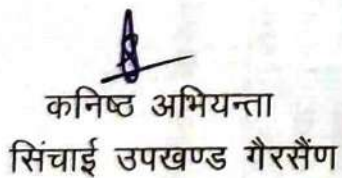 कनिष्ठ अभियन्ता
सिंचाई उपखण्ड गैरसैंण